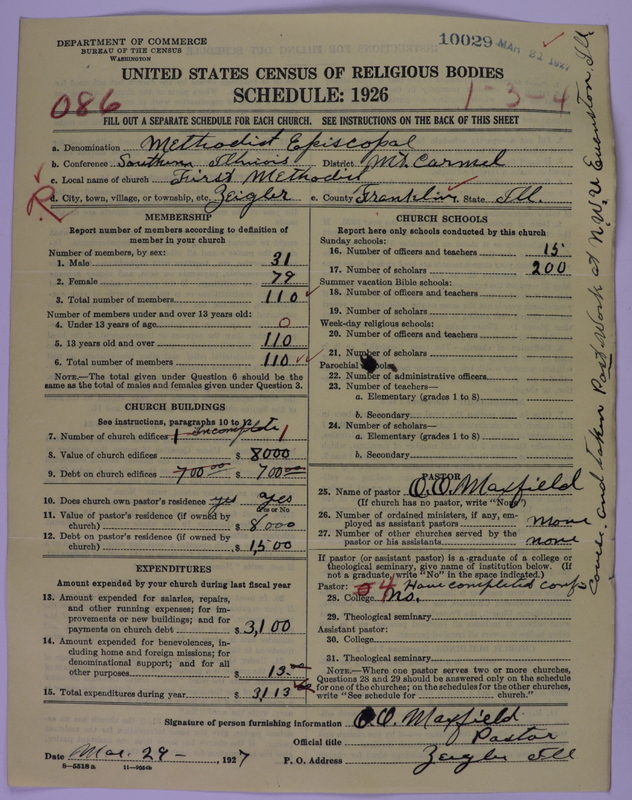 DEPARTMENT OF COMMERCE
BUREAU OF THE CENSUS
WASHINGTON
10029 MAR 31 1927
UNITED STATES CENSUS OF RELIGIOUS BODIES
SCHEDULE: 1926
086
1-3-4
FILL OUT A SEPARATE SCHEDULE FOR EACH CHURCH. SEE INSTRUCTIONS ON THE BACK OF THIS SHEET
a. Denomination Methodist Episcopal
b. Conference Southern Illinois District Mt. Carmel
c. Local name of church First Methodist
d. City, town, village, or township, etc. Zeigler e. County Franklin State Ill.
MEMBERSHIP
Report number of members according to definition of
member in your church
Number of members, by sex:
1. Male 31
2. Female 79
3. Total number of members 110
Number of members under and over 13 years old:
4. Under 13 years of age 0
5. 13 years old and over 110
6. Total number of members 110
NOTE.—The total given under Question 6 should be
the same as the total of males and females given under Question 3.
CHURCH BUILDINGS
See instructions, paragraphs 10 to 12
7. Number of church edifices 1 Incomplete 1
8. Value of church edifices $ 8000
9. Debt on church edifices 700.00 $ 700.00
10. Does church own pastor's residence yes yes
Yes or No
11. Value of pastor's residence (if owned by
church) $ 8000
12. Debt on pastor's residence (if owned by
church) $ 1,500
EXPENDITURES
Amount expended by your church during last fiscal year
13. Amount expended for salaries, repairs,
and other running expenses; for im-
provements or new buildings; and for
payments on church debt $ 3,100
14. Amount expended for benevolences, in-
cluding home and foreign missions; for
denominational support; and for all
other purposes $ 13.00
15. Total expenditures during year $ 3113
CHURCH SCHOOLS
Report here only schools conducted by this church
Sunday schools:
16. Number of officers and teachers 15
17. Number of scholars 200
Summer vacation Bible schools:
18. Number of officers and teachers
19. Number of scholars
Week-day religious schools:
20. Number of officers and teachers
21. Number of scholars
Parochial schools:
22. Number of administrative officers
23. Number of teachers—
a. Elementary (grades 1 to 8)
b. Secondary
24. Number of scholars—
a. Elementary (grades 1 to 8)
b. Secondary
PASTOR
25. Name of pastor O.O. Maxfield
(If church has no pastor, write "No")
26. Number of ordained ministers, if any, em-
ployed as assistant pastors none
27. Number of other churches served by the
pastor or his assistants none
If pastor (or assistant pastor) is a graduate of a college or
theological seminary, give name of institution below. (If
not a graduate, write "No" in the space indicated.)
Pastor: 04 Have completed conf.
course. and taken Post. Work at N.W.U Evanston, Ill
28. College No.
29. Theological seminary
Assistant pastor:
30. College
31. Theological seminary
NOTE.—Where one pastor serves two or more churches,
Questions 28 and 29 should be answered only on the schedule
for one of the churches; on the schedules for the other churches,
write "See schedule for church."
Signature of person furnishing information O.O. Maxfield
Official title Pastor
Date Mar. 29 - , 1927 P. O. Address Zeigler Ill
8—5518a 11—9554b